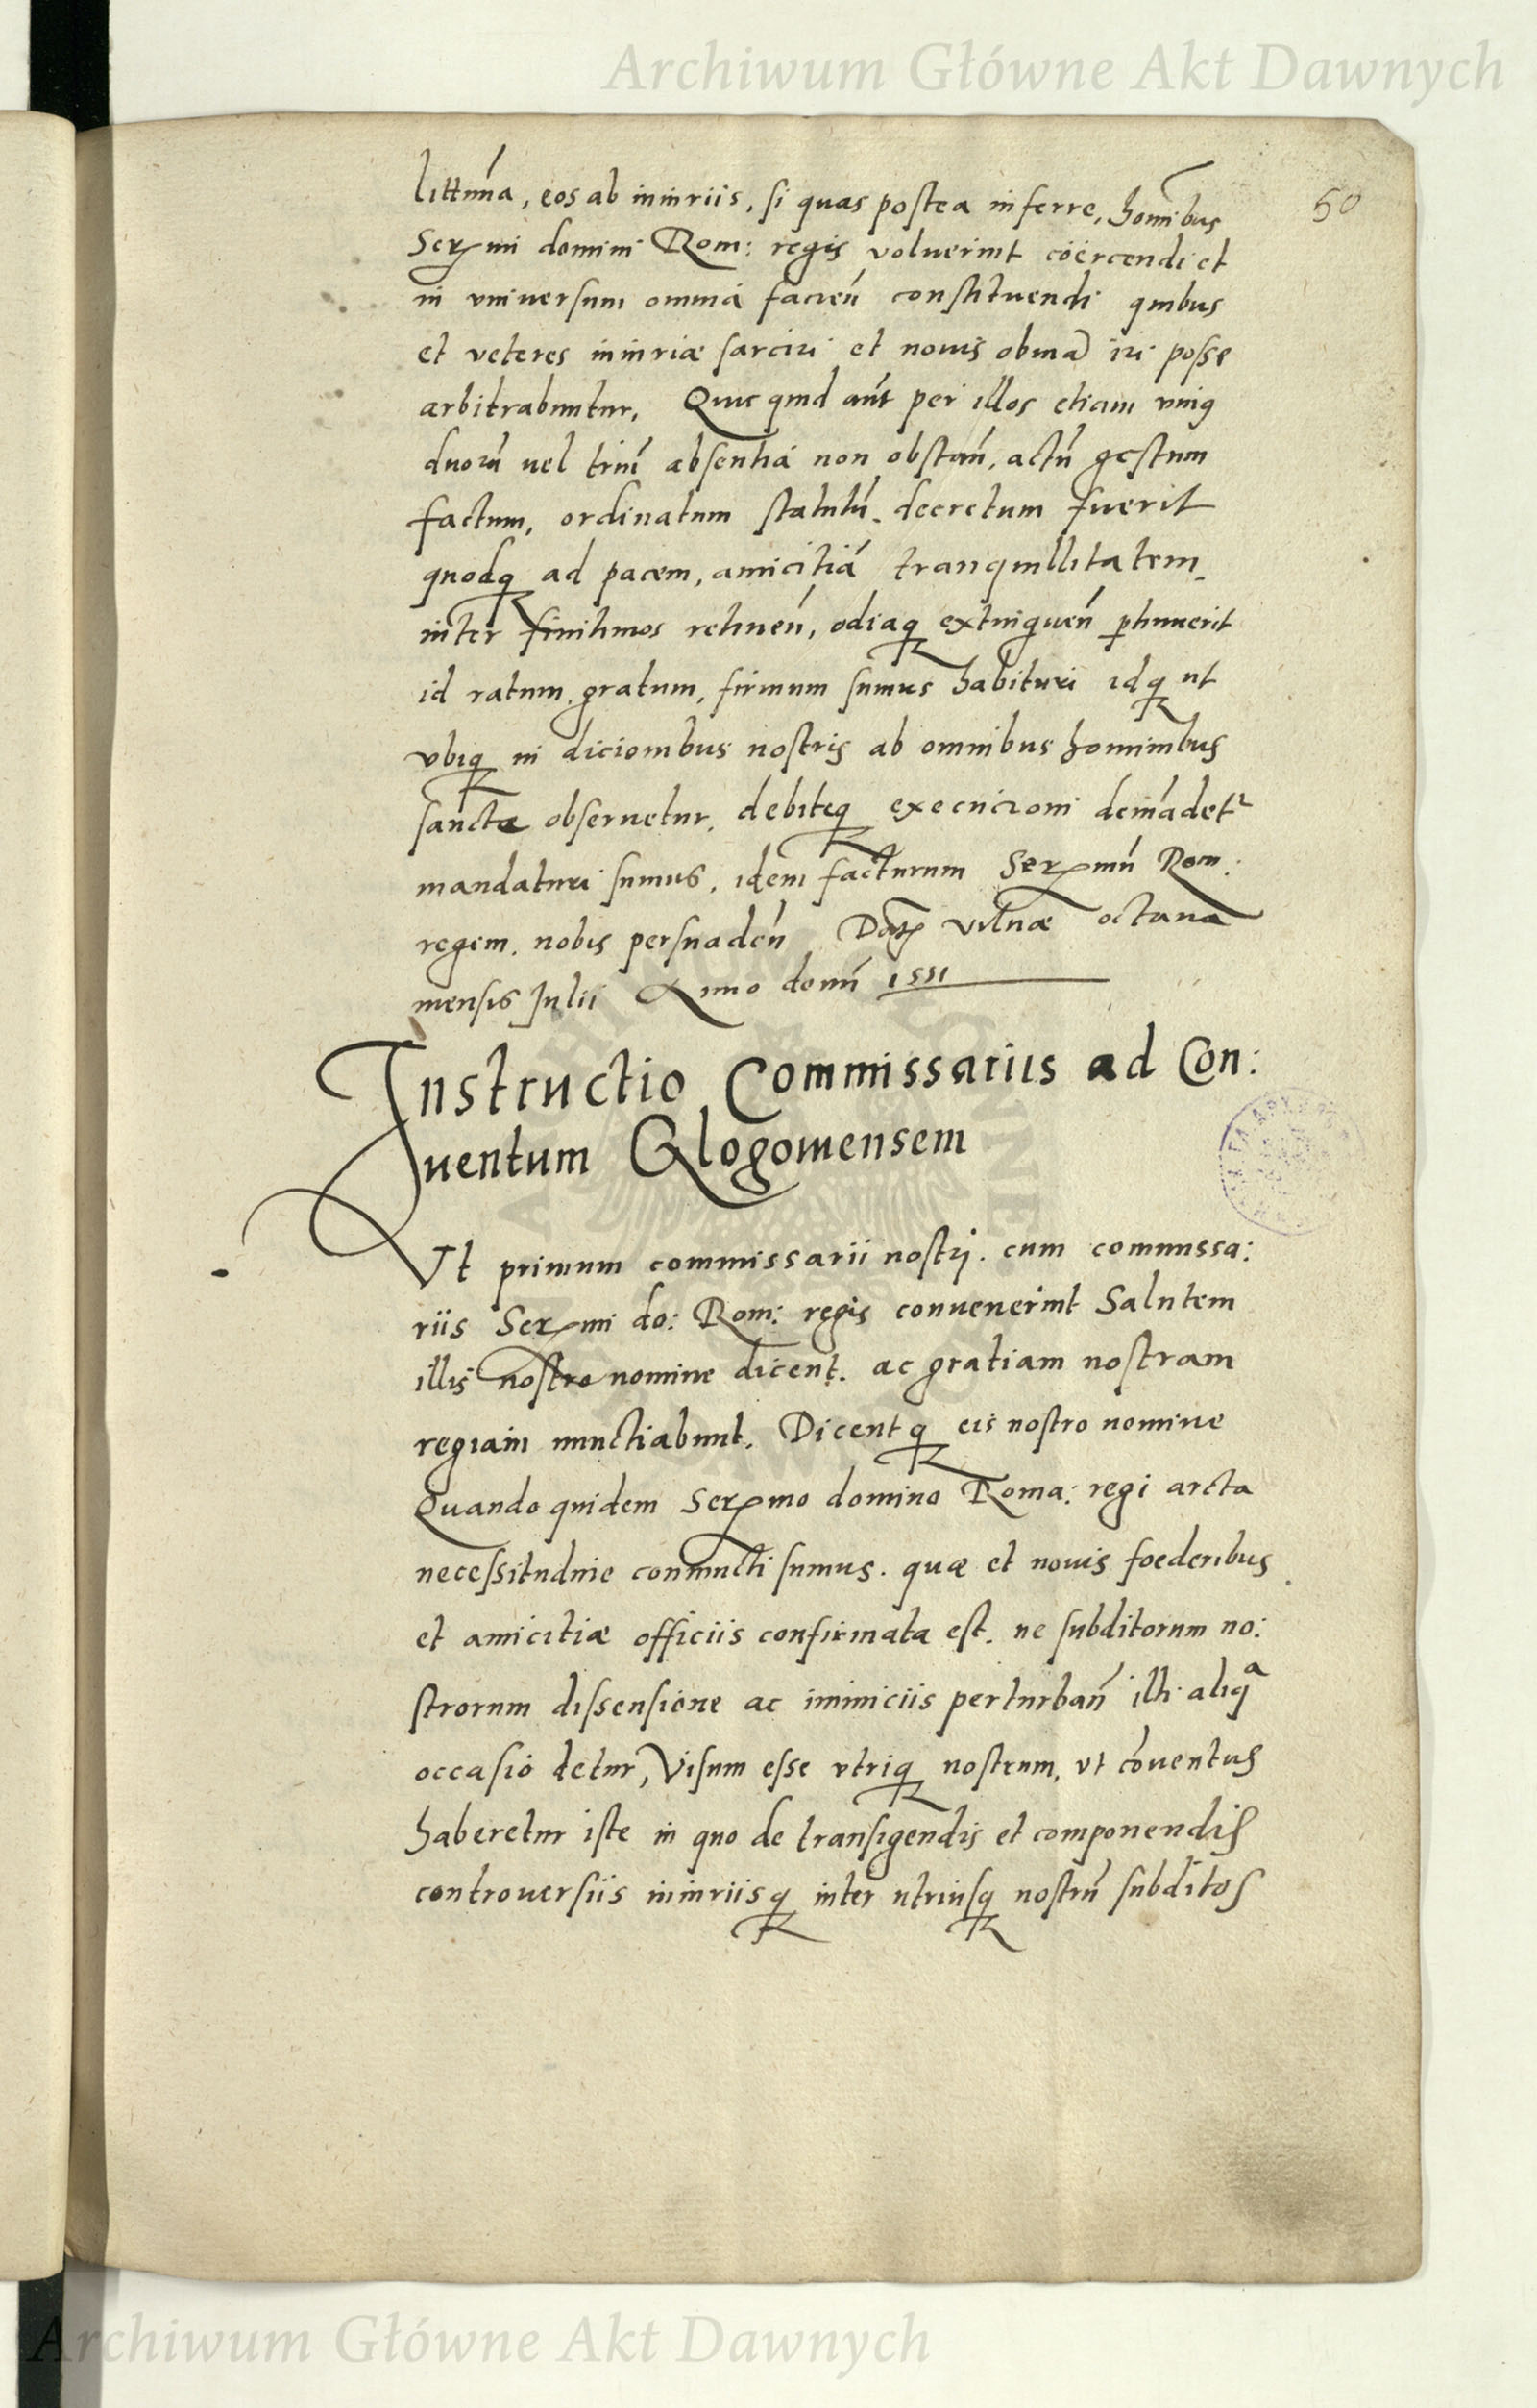 Archiwum Główne Akt Dawnych
50
littima, eos ab iniuriis, si quas postea inferre, hominibus
Sermi domini Rom: regis voluerint coërcendi et
in vniuersum omnia facien̄ constituendi quibus
et veteres iniuriæ sarciri et nouis obuiā iri posse
arbitrabuntur. Quicquid aūt per illos etiam vniꝰ
duorū uel triū absentiā non obstan̄, actū gestum
factum, ordinatum statutū decretum fuerit
quodq; ad pacem, amicitiā tranquillitatem
inter finitimos retinen̄, odiaq; extinguen̄ ꝑtinuerit
id ratum gratum, firmum sumus habituri idq; ut
vbiq; in dicionibus nostris ab omnibus hominibus
sanctæ obseruetur, debiteq; execucioni demādetr
mandaturi sumus, idem facturum Sermū Rom:
regem nobis persuaden̄ Dat Vilnæ octaua
mensis Julii Anno domī 1551
Instructio Commissariis ad Con:
uentum Glogouiensem
Vt primum commissarii nostrj cum commissa:
riis Sermi do: Rom: regis conuenerint Salutem
illis nostro nomine dicent. ac gratiam nostram
regiam nunctiabunt. Dicentq; eis nostro nomine
Quando quidem Sermo domino Roma: regi arcta
necessitudine coniuncti sumus. quæ et nouis foederibus
et amicitiæ officiis confirmata est. ne subditorum no:
strorum dissensione ac inimiciis perturban̄ illi aliqa
occasio detur, Visum esse vtriq; nostrum, vt cōuentus
haberetur iste in quo de transigendis et componendis
controuersiis iniuriisq; inter utriusq; nostrū subditos
Archiwum Główne Akt Dawnych